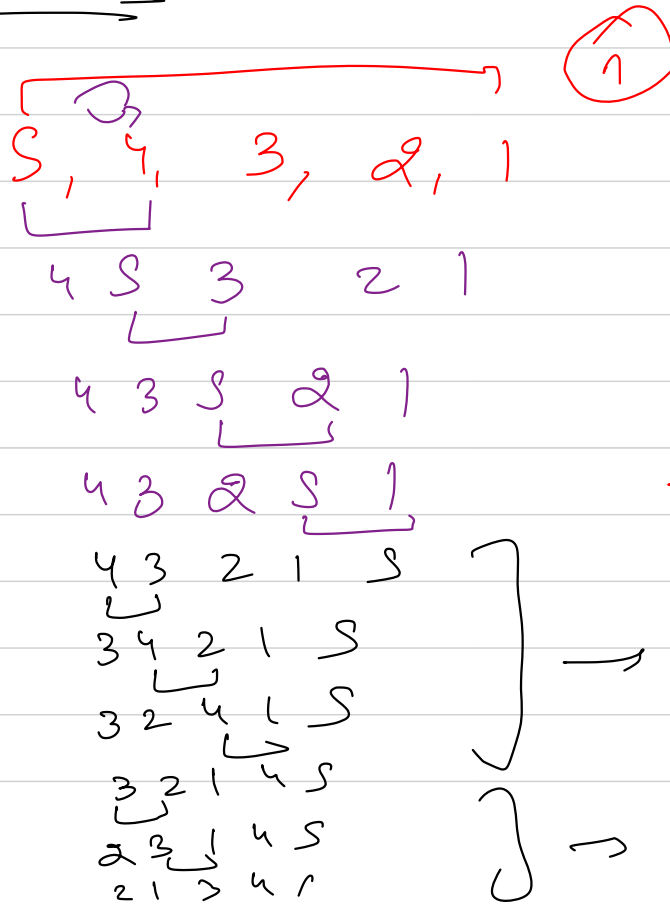 1
5, 4, 3, 2, 1
4 5 3 2 1
4 3 5 2 1
4 3 2 5 1
4 3 2 1 5
3 4 2 1 5
3 2 4 1 5
3 2 1 4 5
2 3 1 4 5
2 1 3 4